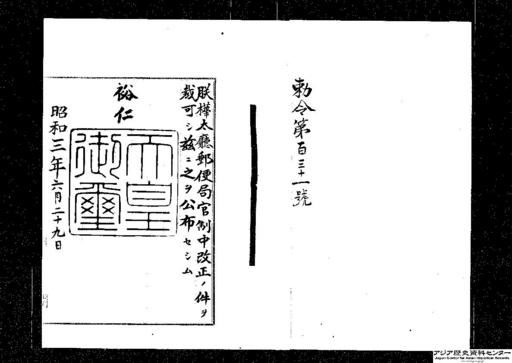 勅令第百三十一號
朕樺太廳郵便局官制中改正ノ件ヲ
裁可シ茲ニ之ヲ公布セシム
裕仁
天皇
御璽
昭和三年六月二十九日
アジア歴史資料センター
Japan Center for Asian Historical Records